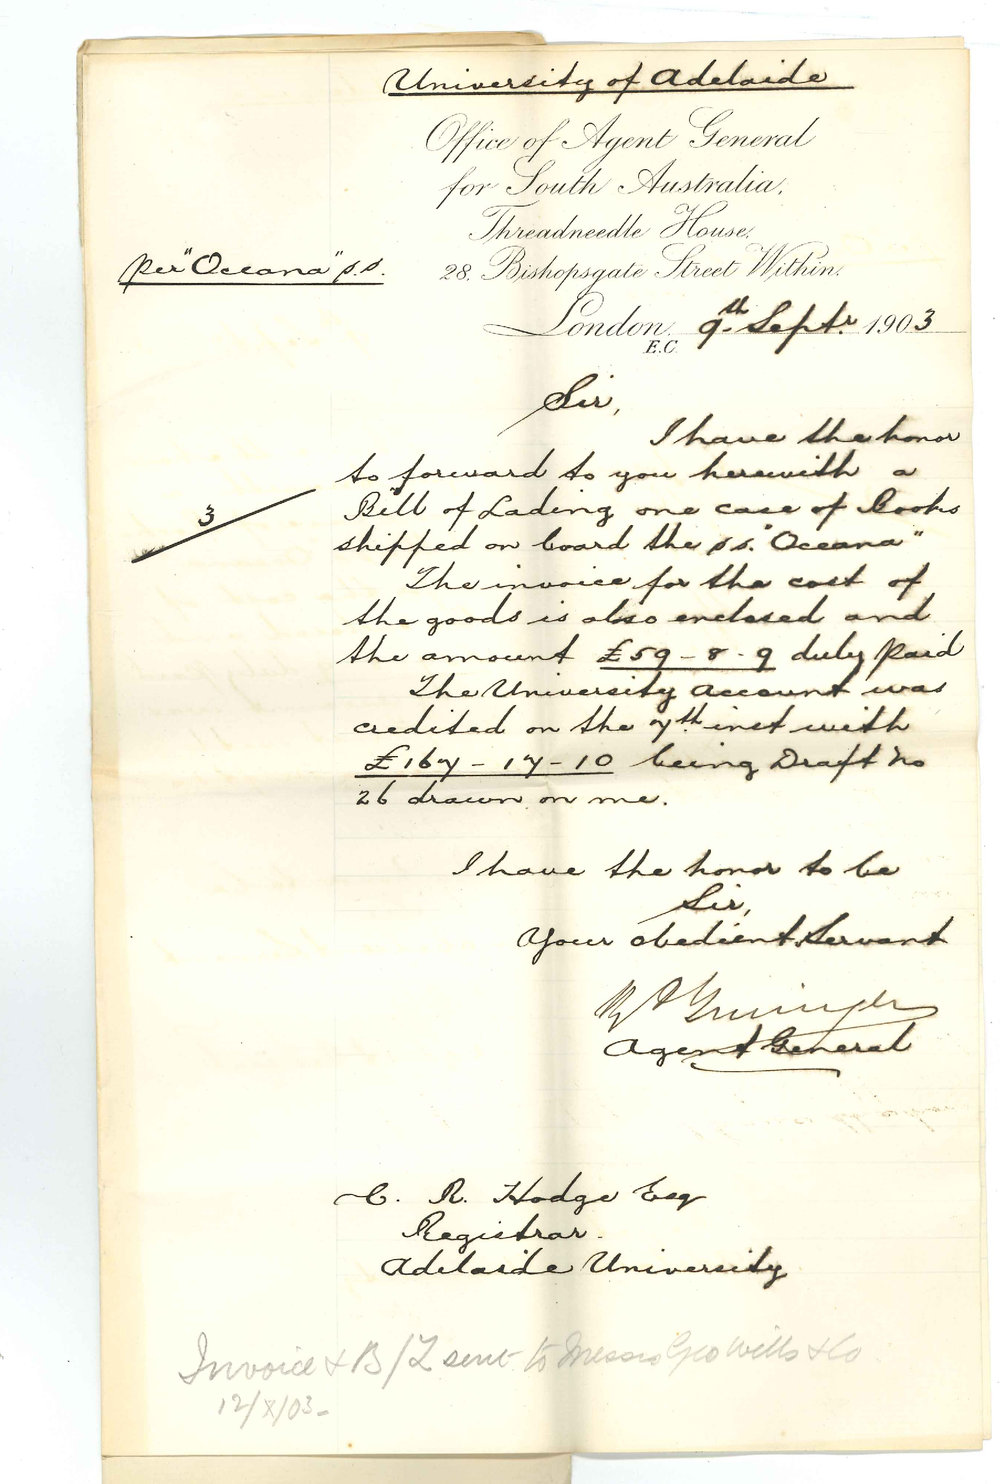 University of Adelaide
Office of Agent General
for South Australia,
Threadneedle House,
28. Bishopsgate Street Within,
per "Oceana" s.s.
London, 9th Septr. 1903
E.C.
Sir,
I have the honor
to forward to you herewith a
3
Bill of Lading one case of Books
shipped on board the s.s. "Oceana"
The invoice for the cost of
the goods is also enclosed and
the amount £59-8-9 duly paid
The University account was
credited on the 7th inst with
£167-17-10 being Draft No
26 drawn on me.
I have the honor to be
Sir,
Your obedient Servant
Agent General
C. R. Hodge Esq
Registrar.
Adelaide University
Invoice & B/L sent to Messrs Geo Wills & Co
12/X/03-